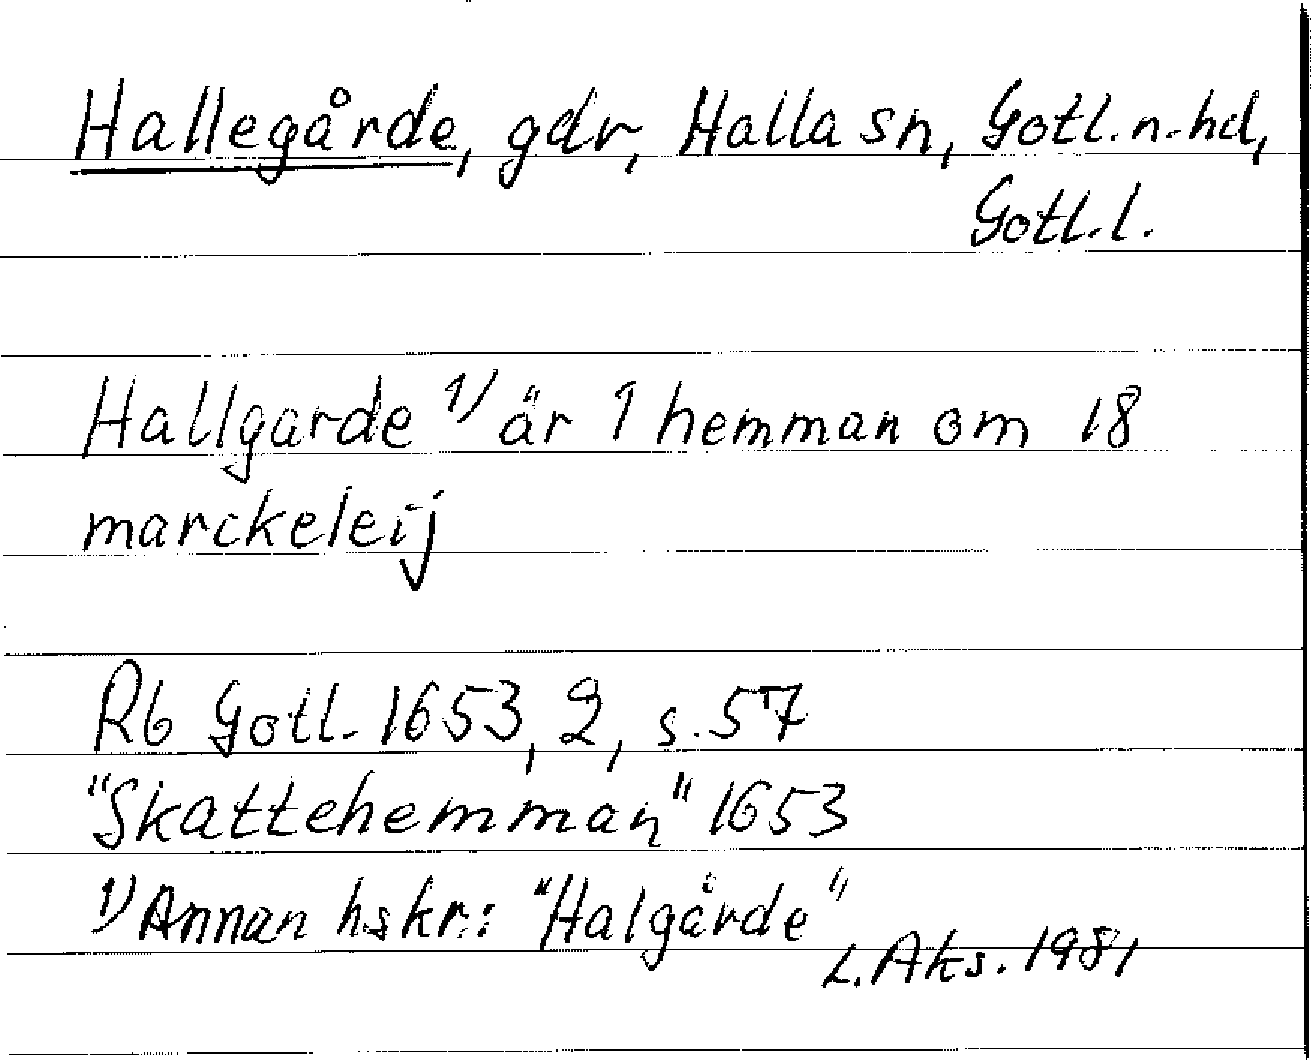 Hallegårde, gdr, Halla sn, Gotl. n. hd,
Gotl. l.
Hallgarde 1) är 1 hemman om 18
marckeleij
Rb Gotl. 1653, 2, s. 57
"Skattehemman" 1653
1) Annan hskr: "Halgårde"
L. Aks. 1981